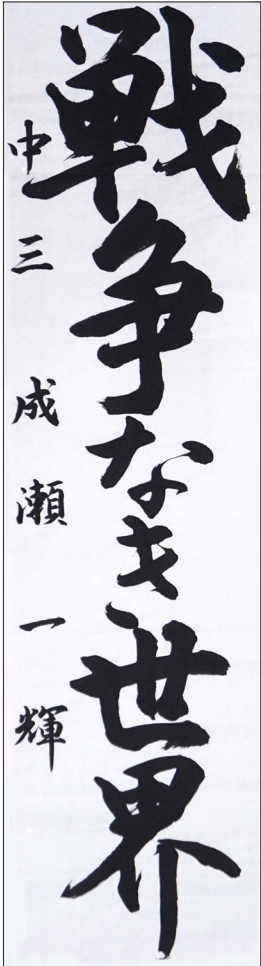 戦争なき世界
中三 成瀬一輝